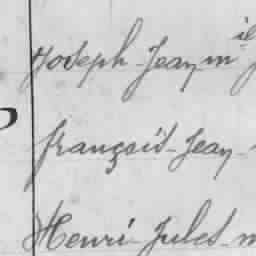 Joseph Jean m
françois Jean
Henri Jules m